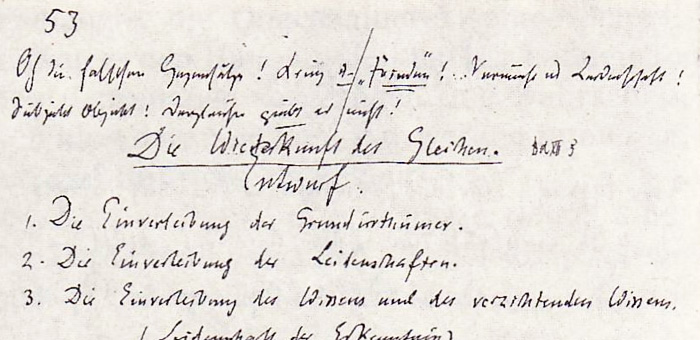 53
Oh die falschen Gegensätze! Krieg u. „Frieden“! Vernunft und Leidenschaft!
Subjekt Objekt! Dergleichen giebt es nicht!
Die Wiederkunft des Gleichen. Bd XII 3
Entwurf.
1. Die Einverleibung der Grundirrthümer.
2. Die Einverleibung der Leidenschaften.
3. Die Einverleibung des Wissens und des verzichtenden Wissens.
(Leidenschaft der Erkenntniß)